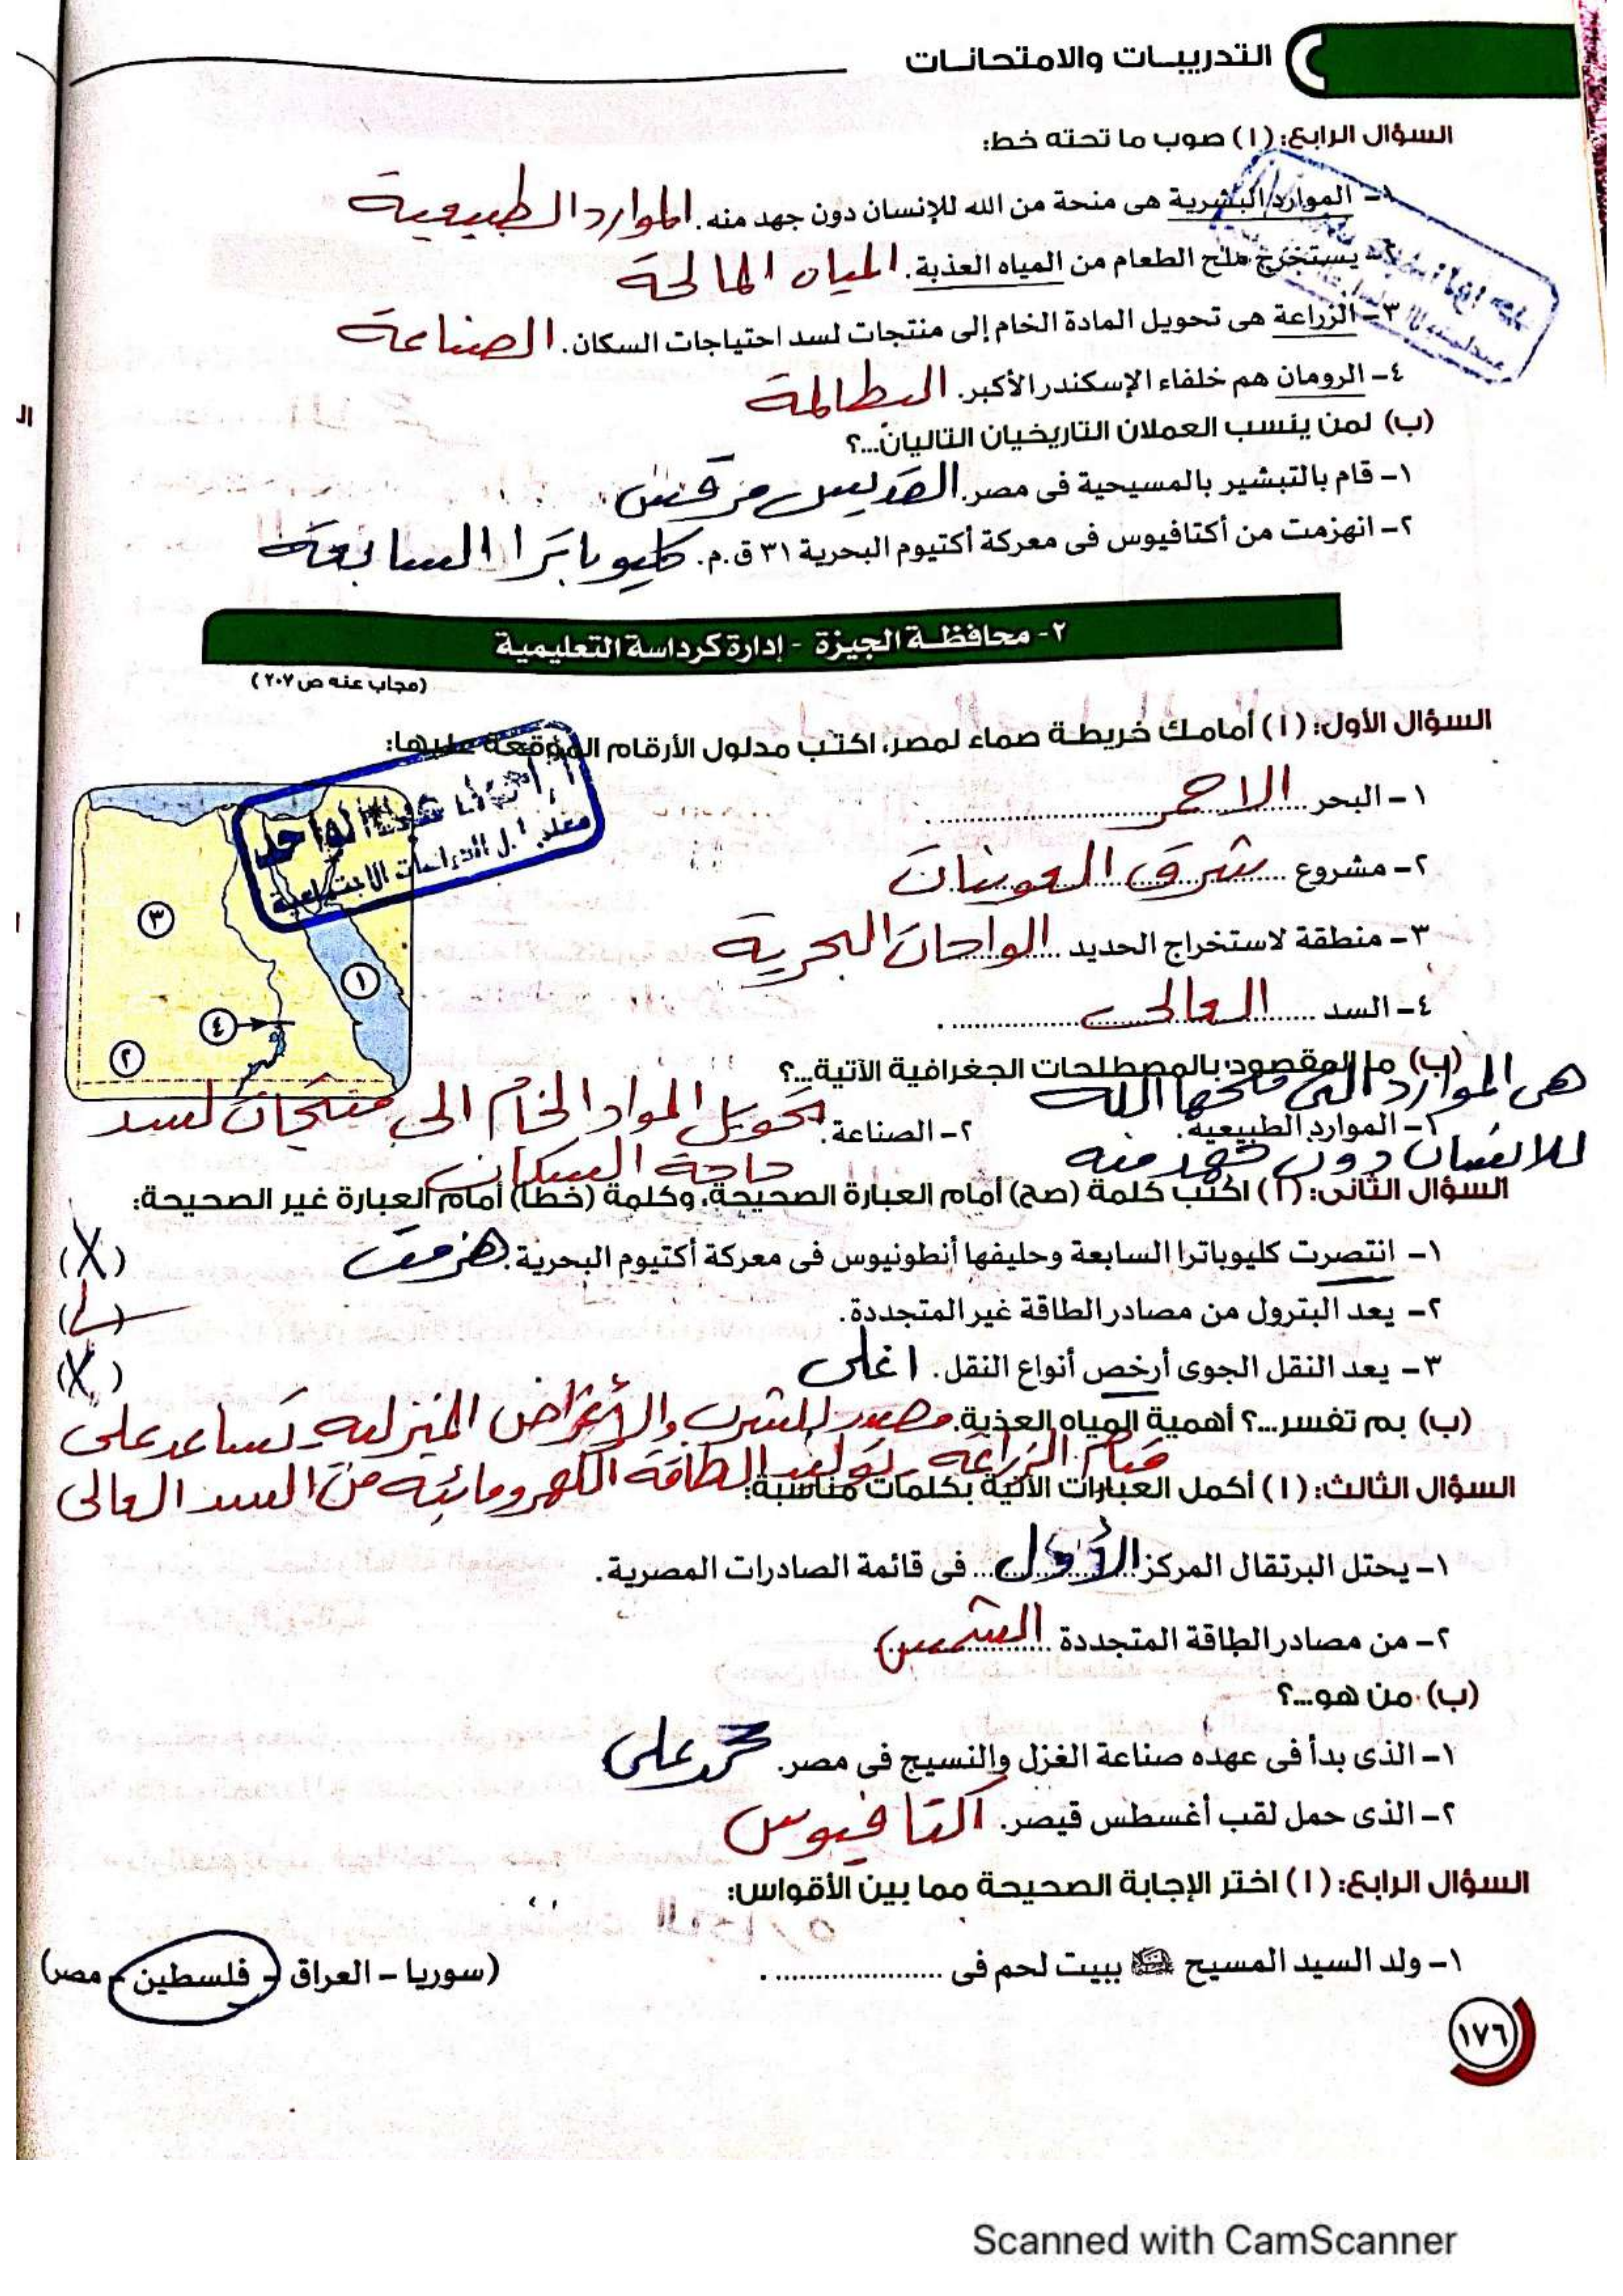 التدريبات والامتحانات
السؤال الرابع: (١) صوب ما تحته خط:
١- الموارد البشرية هى منحة من الله للإنسان دون جهد منه. الموارد الطبيعية
٢- يستخرج ملح الطعام من المياه العذبة. المياه المالحة
٣- الزراعة هى تحويل المادة الخام إلى منتجات لسد احتياجات السكان. الصناعة
٤- الرومان هم خلفاء الإسكندر الأكبر. البطالمة
(ب) لمن ينسب العملان التاريخيان التاليان...؟
١- قام بالتبشير بالمسيحية فى مصر. القديس مرقس
٢- انهزمت من أكتافيوس فى معركة أكتيوم البحرية ٣١ ق.م. كليوباترا السابعة
٢- محافظة الجيزة - إدارة كرداسة التعليمية
(مجاب عنه ص ٢٠٧)
السؤال الأول: (١) أمامك خريطة صماء لمصر، اكتب مدلول الأرقام الموقعة عليها:
١- البحر الاحمر
٢- مشروع شرق العوينات
٣- منطقة لاستخراج الحديد الواحات البحرية
٤- السد العالى
٣
١
٤
٢
عبد الواحد
معلم أ.ل الدراسات الاجتماعية
(ب) ما المقصود بالمصطلحات الجغرافية الآتية...؟
هى الموارد التى منحها الله
١- الموارد الطبيعية. ٢- الصناعة. تحويل المواد الخام الى منتجات لسد
للانسان دون جهد منه حاجة السكان
السؤال الثانى: (١) اكتب كلمة (صح) أمام العبارة الصحيحة، وكلمة (خطأ) أمام العبارة غير الصحيحة:
١- انتصرت كليوباترا السابعة وحليفها أنطونيوس فى معركة أكتيوم البحرية. هزمت (X)
٢- يعد البترول من مصادر الطاقة غير المتجددة. (✓)
٣- يعد النقل الجوى أرخص أنواع النقل. اغلى (X)
(ب) بم تفسر...؟ أهمية المياه العذبة. مصدر للشرب والأغراض المنزليه - تساعد على
قيام الزراعة - توليد الطاقة الكهرومائيه من السد العالى
السؤال الثالث: (١) أكمل العبارات الآتية بكلمات مناسبة:
١- يحتل البرتقال المركز الأول فى قائمة الصادرات المصرية.
٢- من مصادر الطاقة المتجددة الشمس
(ب) من هو...؟
١- الذى بدأ فى عهده صناعة الغزل والنسيج فى مصر. محمد على
٢- الذى حمل لقب أغسطس قيصر. اكتافيوس
السؤال الرابع: (١) اختر الإجابة الصحيحة مما بين الأقواس:
١- ولد السيد المسيح ببيت لحم فى .................... . (سوريا - العراق - فلسطين - مصر)
١٧٦
Scanned with CamScanner